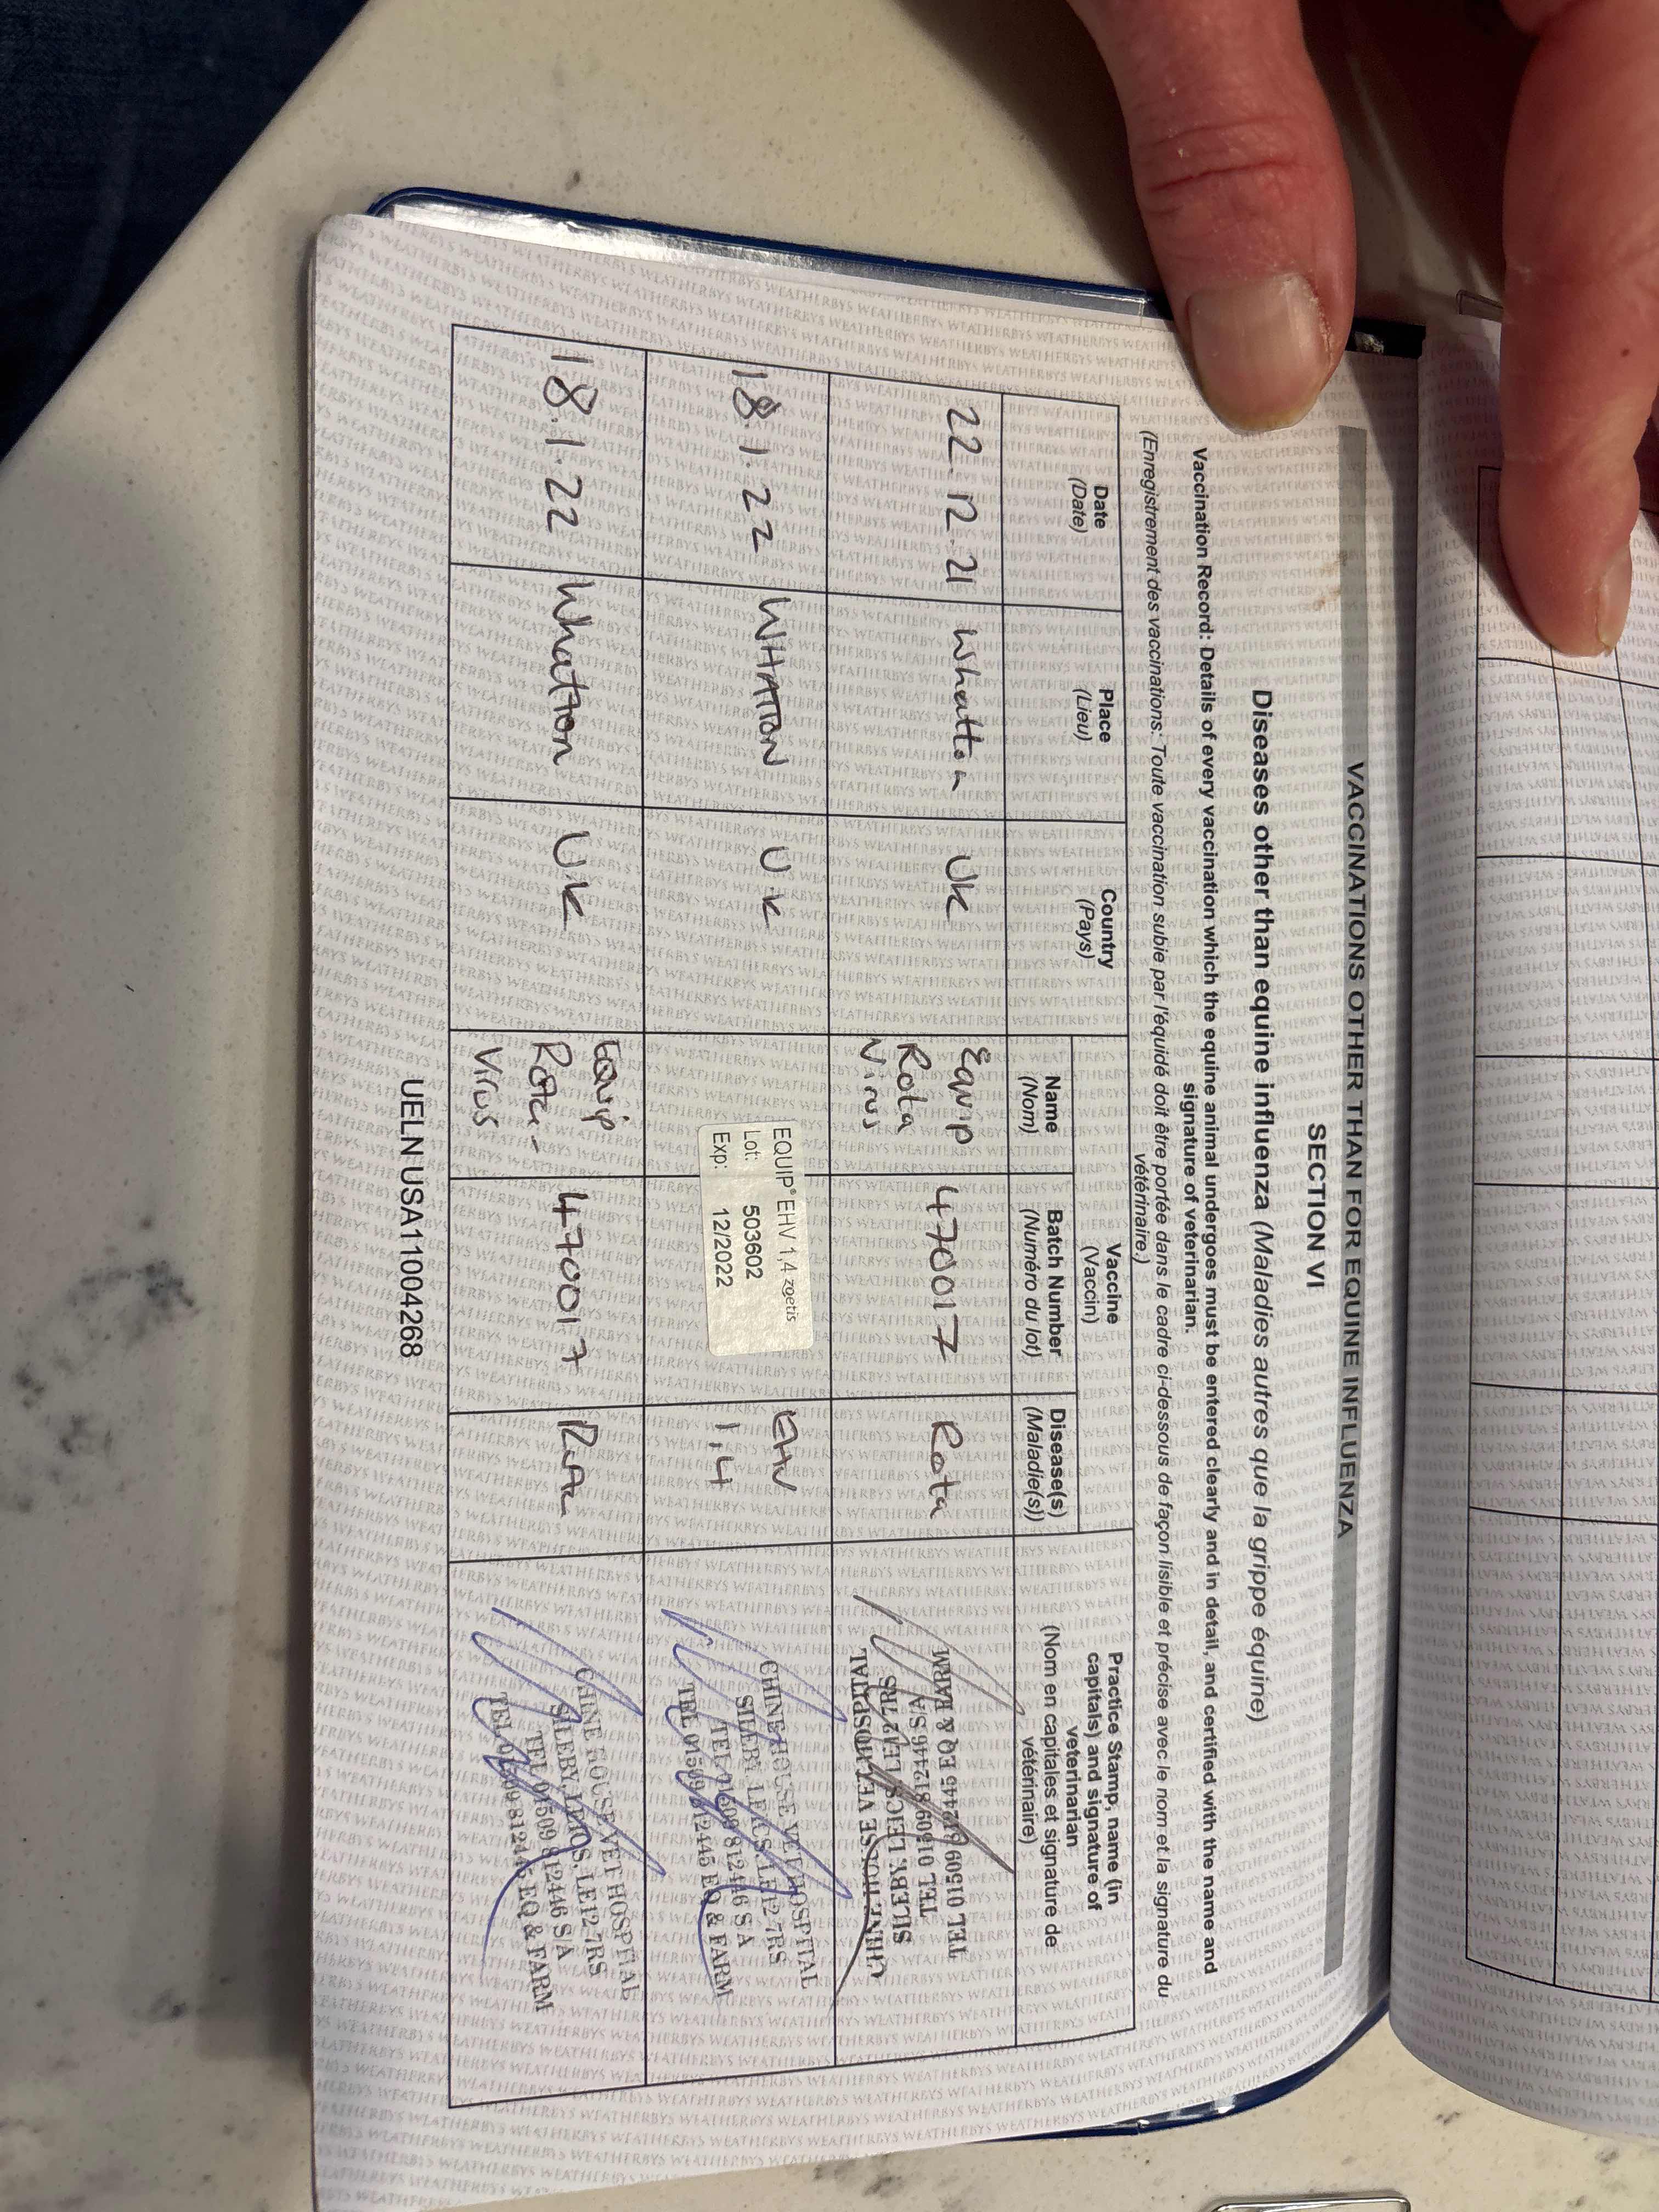 VACCINATIONS OTHER THAN FOR EQUINE INFLUENZA
SECTION VI
Diseases other than equine influenza (Maladies autres que la grippe équine)
Vaccination Record: Details of every vaccination which the equine animal undergoes must be entered clearly and in detail, and certified with the name and
signature of veterinarian.
(Enregistrement des vaccinations: Toute vaccination subie par l'équidé doit être portée dans le cadre ci-dessous de façon lisible et précise avec le nom et la signature du
vétérinaire.)
Date
(Date)
Place
(Lieu)
Country
(Pays)
Vaccine
(Vaccin)
Name
(Nom)
Batch Number
(Numéro du lot)
Disease(s)
(Maladie(s))
Practice Stamp, name (in
capitals) and signature of
veterinarian
(Nom en capitales et signature de
vétérinaire)
22.12.21
Whatton
UK
Equip
Rota
Virus
470017
Rota
TEL 01509 812445 EQ & FARM
TEL 01509 812446 S/A
SILEBY, LEICS. LE12 7RS
CHINE HOUSE VET HOSPITAL
18.1.22
WHATTON
U.K
EQUIP® EHV 1,4 zoetis
Lot: 503602
Exp: 12/2022
EHV
1,4
CHINE HOUSE VET HOSPITAL
SILEBY, LEICS. LE12 7RS
TEL 01509 812446 S/A
TEL 01509 812445 EQ & FARM
18.1.22
Whatton
U.K
Equip
Rota-
Virus
470017
Rota
CHINE HOUSE VET HOSPITAL
SILEBY, LEICS. LE12 7RS
TEL 01509 812446 S/A
TEL 01509 812445 EQ & FARM
UELN USA11004268